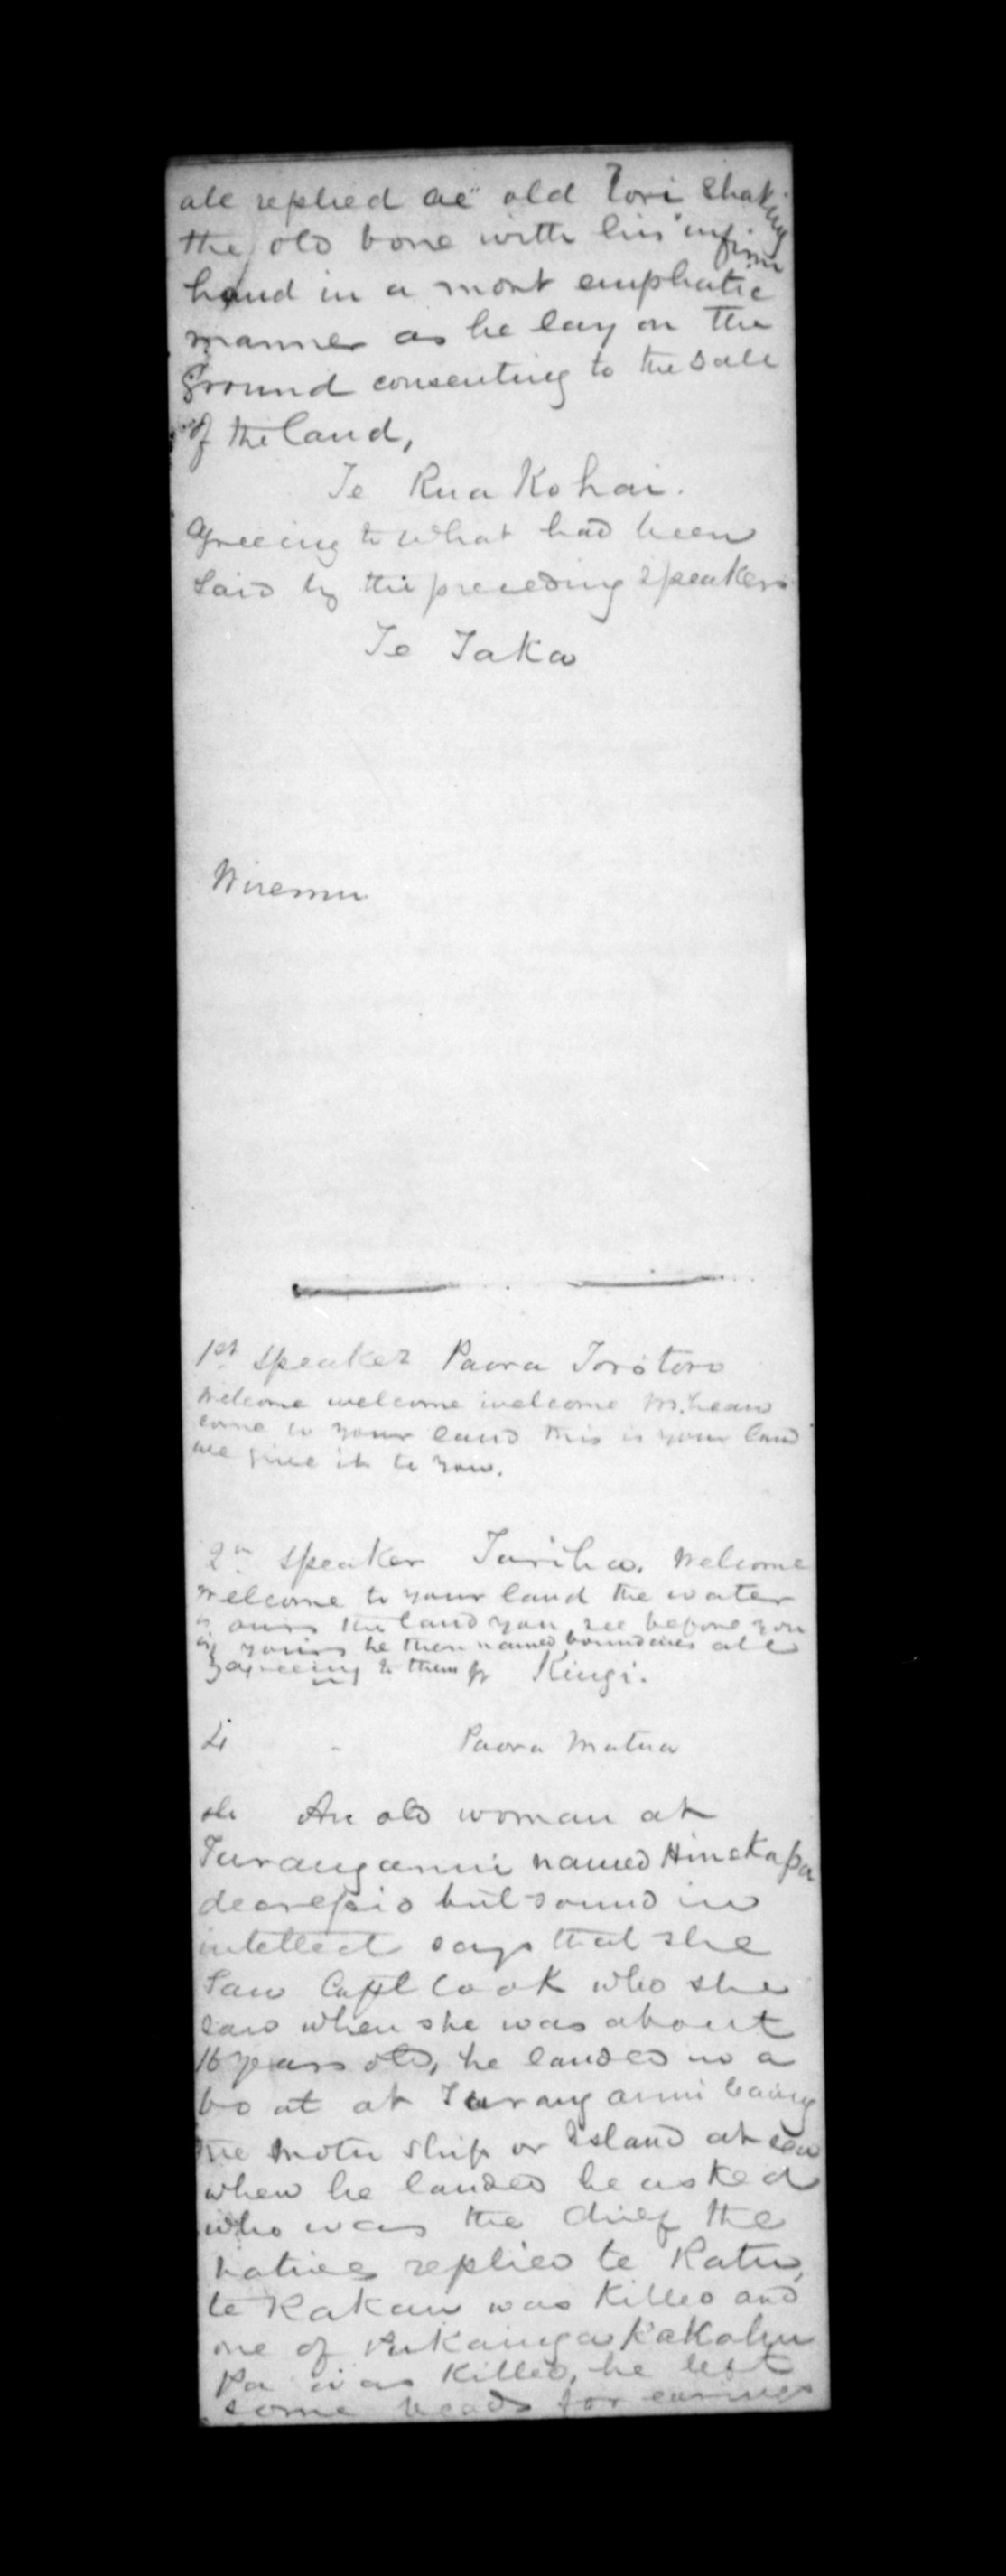 all replied ae" old Tori shaking
the old bone with his infirm
hand in a most emphatic
manner as he lay on the
ground consenting to the sale
of the land,
Te Rua Kohai.
Agreeing to what had been
said by the preceding speakers
Te Taka
Wiremu
1st speaker Paora Torotoro
Welcome welcome welcome McLean
come to your land this is your land
we give it to you.
2nd speaker Tariha. Welcome
welcome to your land the water
is ours the land you see before you
is yours he then named boundaries all
agreeing to them Kingi.
4 - Paora Matua
An old woman at
Turanganui named Hinekapa
decrepid but sound in
intellect says that she
saw Capt Cook who she
saw when she was about
16 years old, he landed in a
boat at Turanganui
the motu ship or Island at sea
when he landed he asked
who was the chief the
natives replied te Ratu,
te Rakau was killed and
one of Pukainga Kakahu
Pa was killed, he left
some beads for earrings